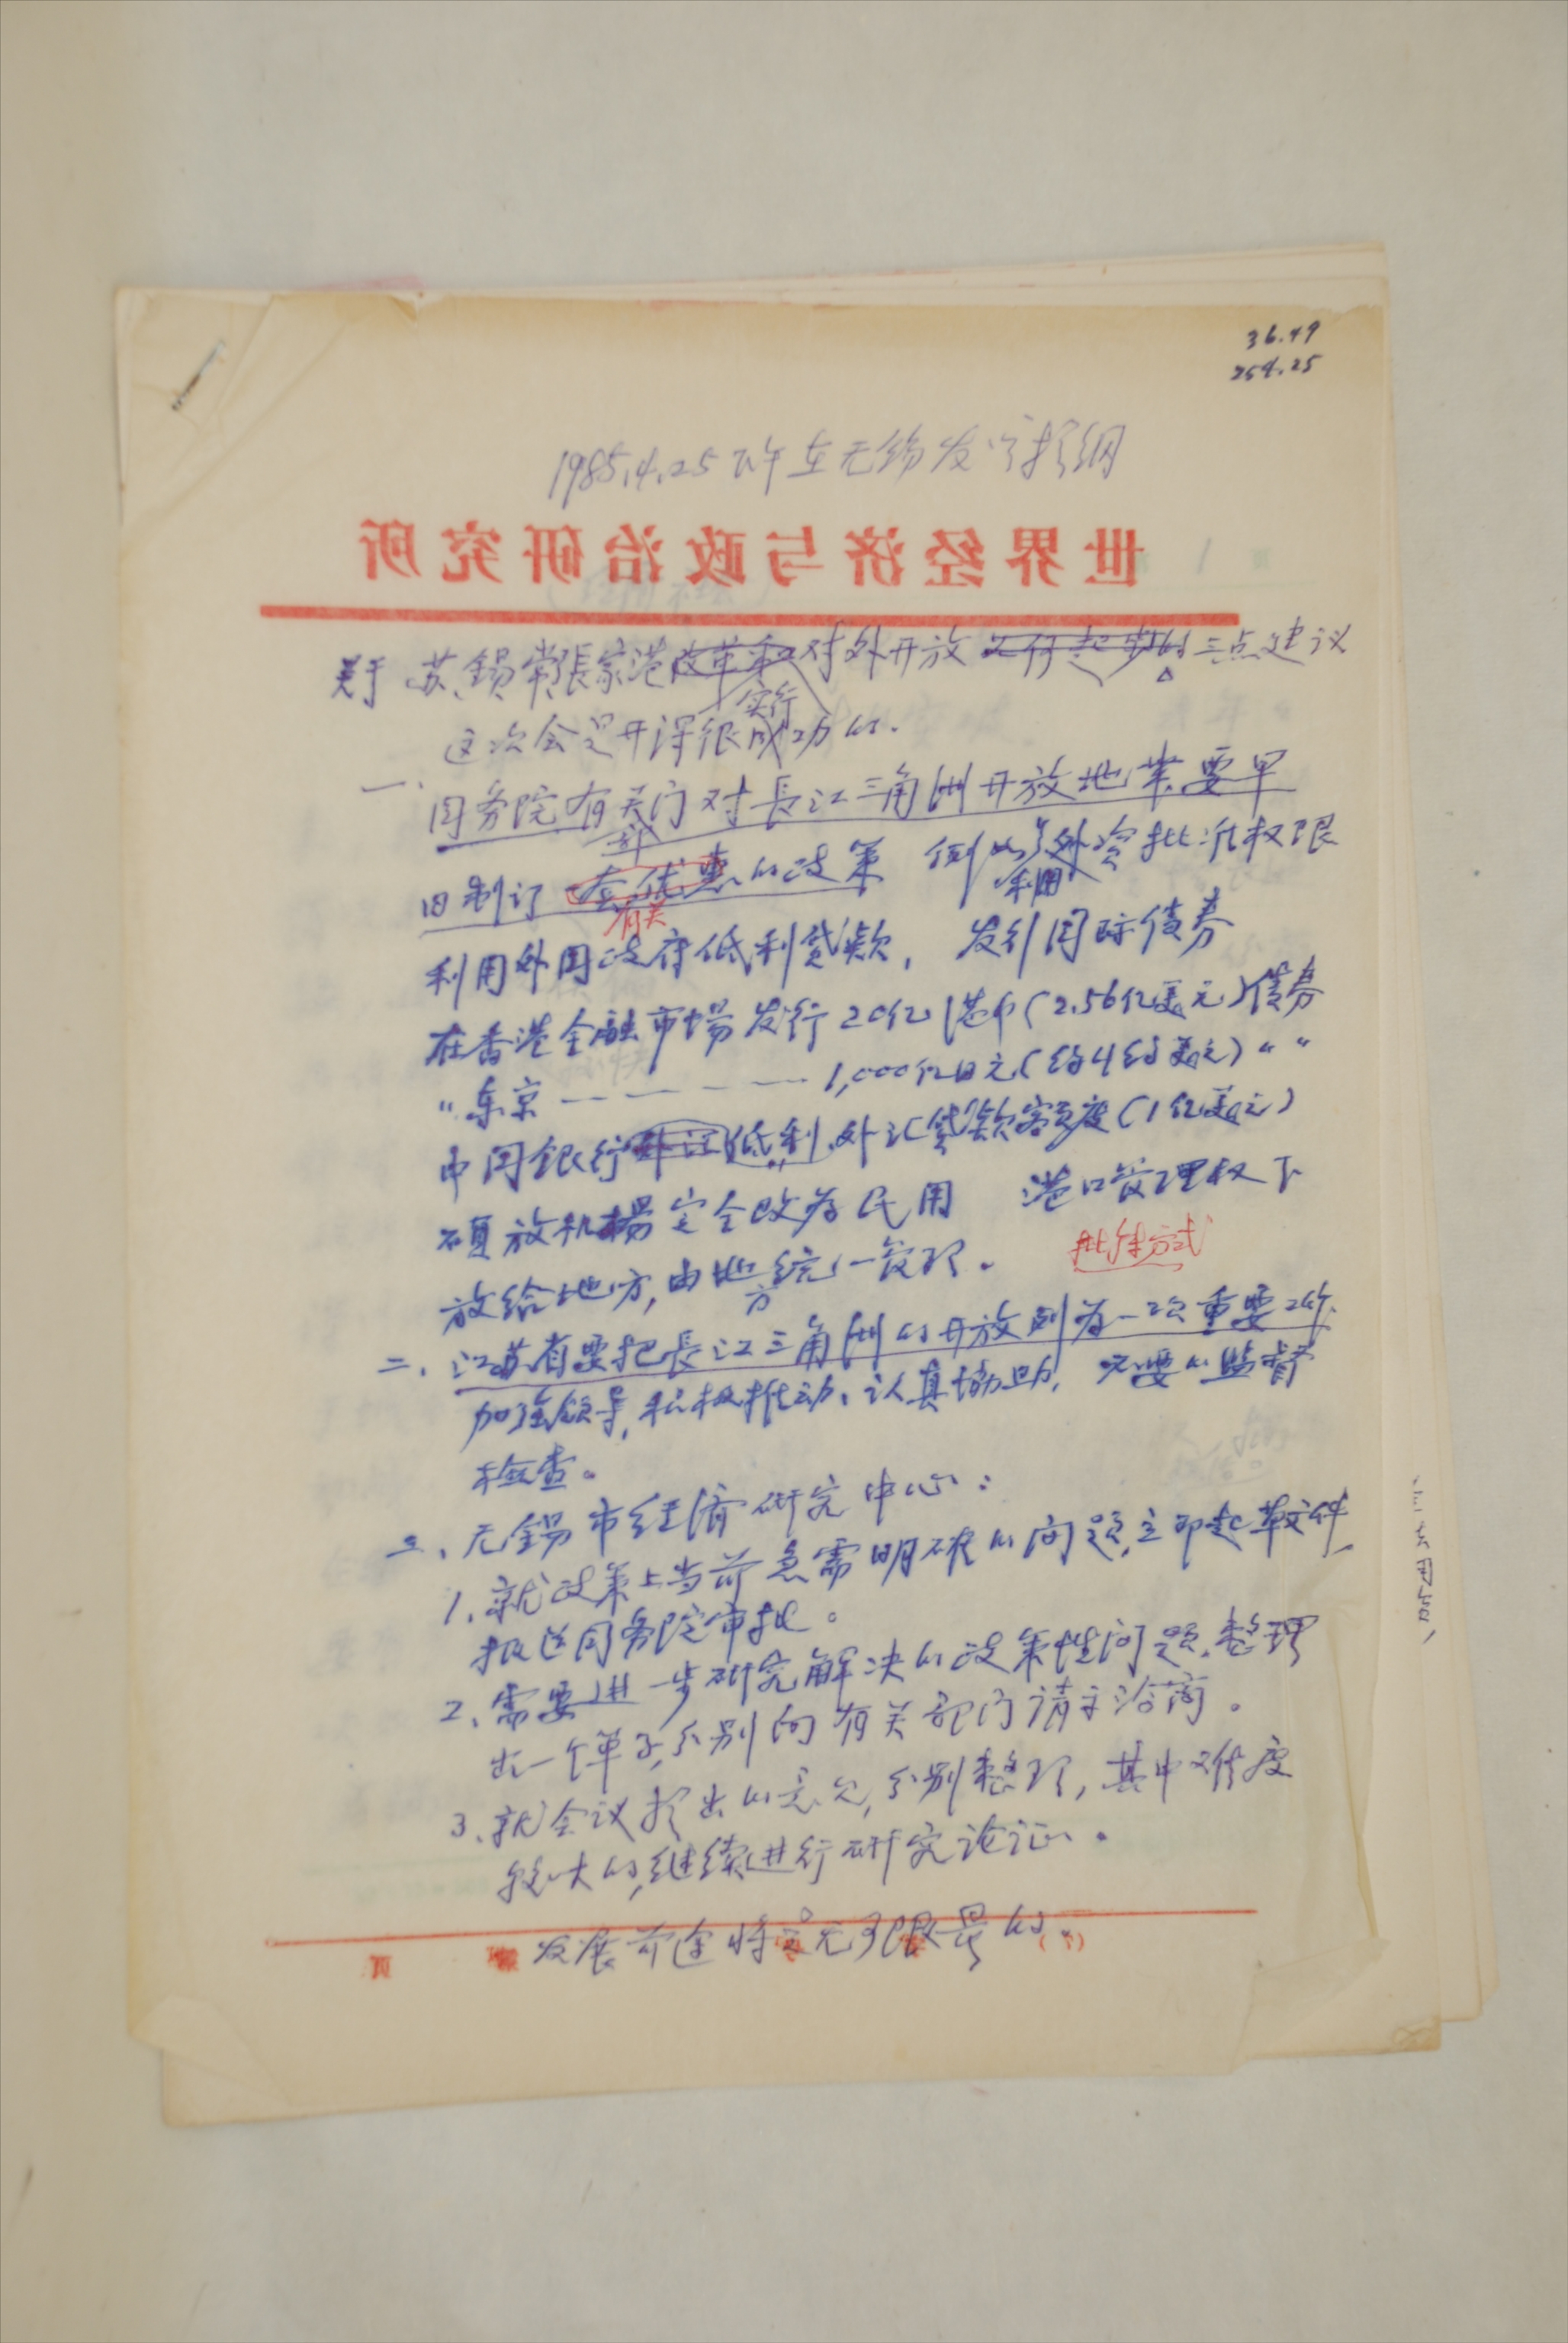 36.49
254.25
1985.4.25下午在无锡发言提纲
世界经济与政治研究所
关于苏、锡、常、張家港改革和实行对外开放如何起步的三点建议
这次会是开得很成功的.
一、国务院有关部门对長江三角洲开放地带、要早
日制订一套优惠有关的政策 例如利用外资批准权限
利用外国政府低利贷款, 发行国际债券
在香港金融市場发行20亿港币(2.56亿美元)债券
〃东京————1,000亿日元(约4亿美元)〃〃
中国银行外汇低利外汇贷款额度(1亿美元)
硕放机場完全改为民用 港口管理权下
放给地方,由地方统一管理。 批件方式
二、江苏省要把長江三角洲的开放列为一项重要工作、
加强领导,积极推动、认真協助, 必要的监督
检查。
三、无錫市经濟研究中心:
1、就政策上当前急需明确的问题,立即起草文件,
报送国务院审批。
2、需要进一步研究解决的政策性问题,整理
出一个单子,分别向有关部门请求洽商。
3、就会议提出的意见,分别整理,其中难度
较大的,继续进行研究论证。
发展前途将是无可限量的。
页